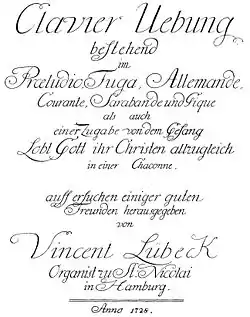 Clavier Uebung
bestehend
im
Præludio, Fuga, Allemande,
Courante, Sarabande und Gique
als auch
einer Zugabe von dem Gesang
Lobt Gott ihr Christen allzugleich
in einer Chaconne.
auff ersuchen einiger guten
Freunden herausgegeben
von
Vincent Lübeck
Organist zu St. Nicolai
in Hamburg.
Anno 1728.